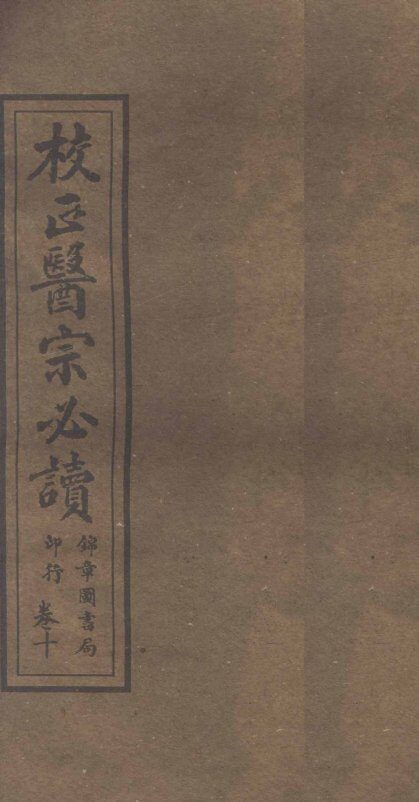 校正醫宗必讀
錦章圖書局
印行
卷十